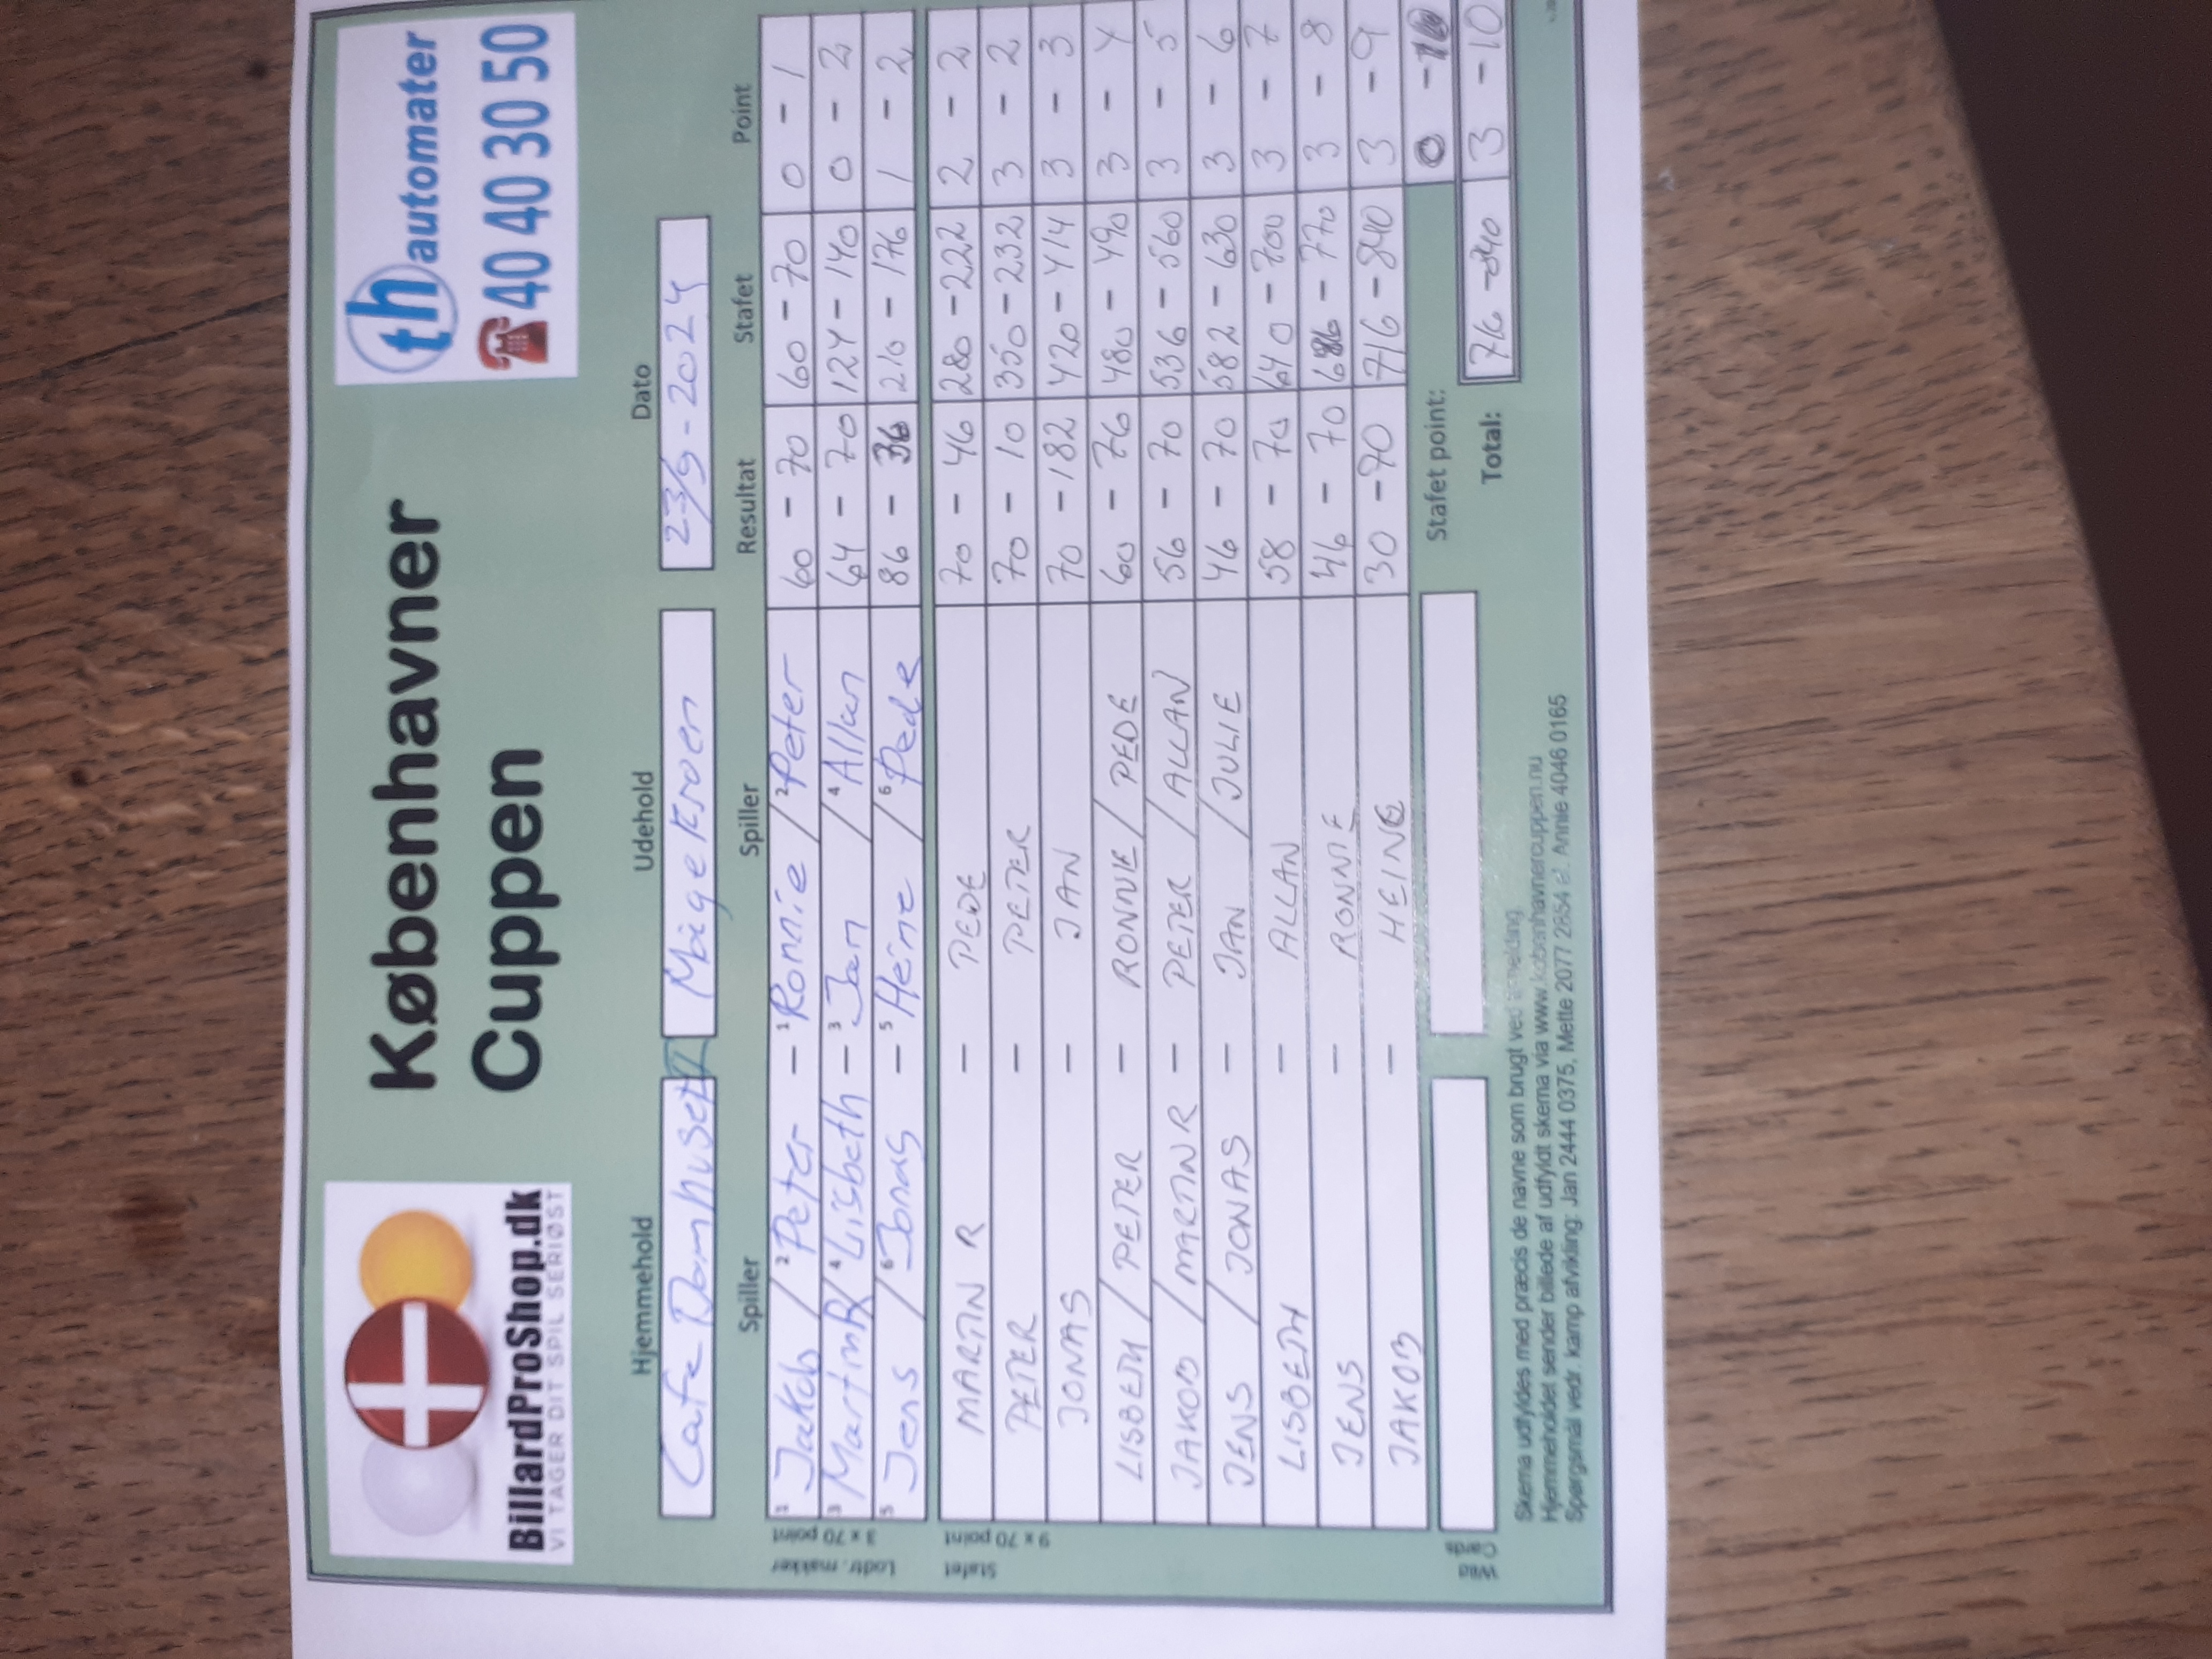 BillardProShop.dk
VI TAGER DIT SPIL SERIØST
Københavner
Cuppen
th automater
☎ 40 40 30 50
Hjemmehold Udehold Dato
Cafe Damhuset II Mågekroen 23/9-2024
Spiller Spiller Resultat Stafet Point
Lodtr. makker
3 x 70 point
1 Jakob / 2 Peter – 1 Ronnie / 2 Peter 60 - 70 60 - 70 0 - 1
3 Martin R / 4 Lisbeth – 3 Jan / 4 Allan 64 - 70 124 - 140 0 - 2
5 Jens / 6 Jonas – 5 Heine / 6 Pede 86 - 36 210 - 176 1 - 2
Stafet
9 x 70 point
MARTIN R – PEDE 70 - 46 280 - 222 2 - 2
PETER – PETER 70 - 10 350 - 232 3 - 2
JONAS – JAN 70 - 182 420 - 414 3 - 3
LISBETH / PETER – RONNIE / PEDE 60 - 76 480 - 490 3 - 4
JAKOB / MARTIN R – PETER / ALLAN 56 - 70 536 - 560 3 - 5
JENS / JONAS – JAN / JULIE 46 - 70 582 - 630 3 - 6
LISBETH – ALLAN 58 - 70 640 - 700 3 - 7
JENS – RONNIE 46 - 70 686 - 770 3 - 8
JAKOB – HEINE 30 - 70 716 - 840 3 - 9
Wild
Cards
Stafet point: 0 - 1
Total: 716 - 840 3 - 10
Skema udfyldes med præcis de navne som brugt ved tilmelding
Hjemmeholdet sender billede af udfyldt skema via www.kobenhavnercuppen.nu
Spørgsmål vedr. kamp afvikling: Jan 2444 0375, Mette 2077 2654 el. Annie 4046 0165